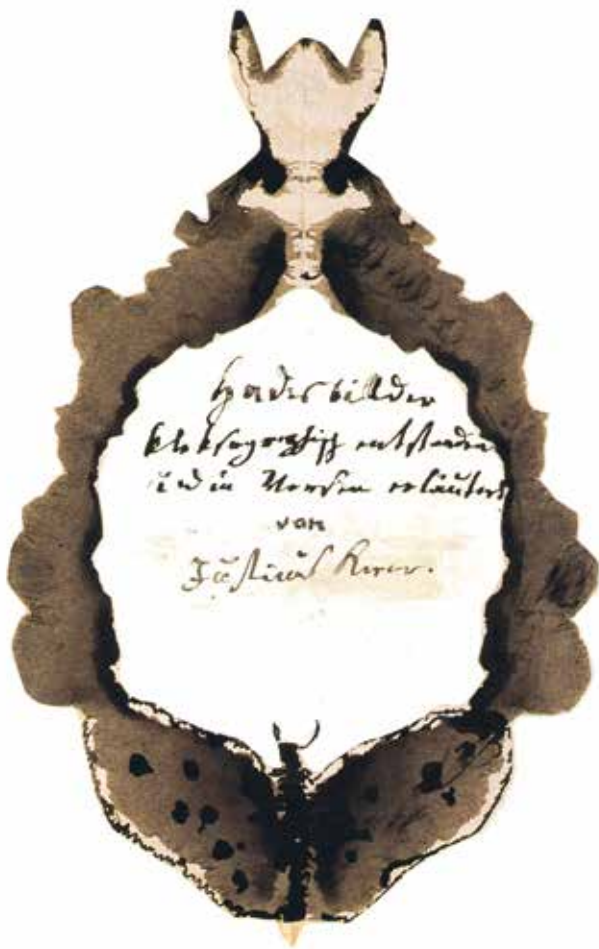 Hadesbilder
kleksographisch entstanden
und in Versen erläutert
von
Justinus Kerner.